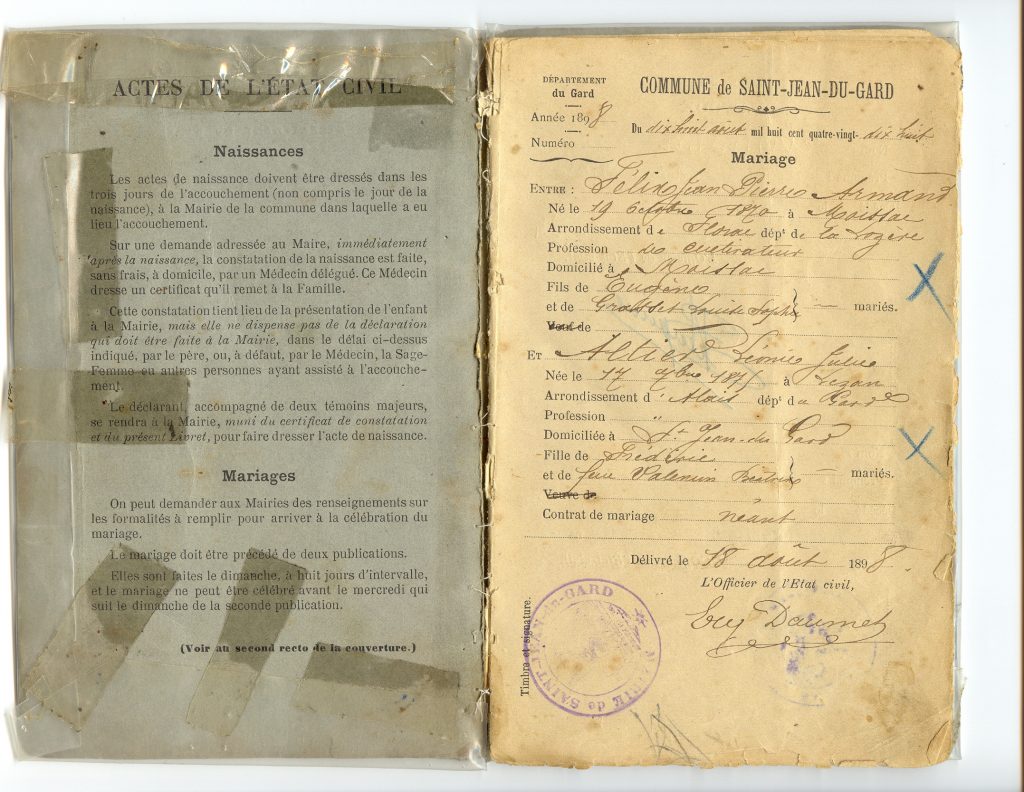 ACTES DE L'ÉTAT CIVIL
Naissances
Les actes de naissance doivent être dressés dans les
trois jours de l'accouchement (non compris le jour de la
naissance), à la Mairie de la commune dans laquelle a eu
lieu l'accouchement.
Sur une demande adressée au Maire, immédiatement
après la naissance, la constatation de la naissance est faite,
sans frais, à domicile, par un Médecin délégué. Ce Médecin
dresse un certificat qu'il remet à la Famille.
Cette constatation tient lieu de la présentation de l'enfant
à la Mairie, mais elle ne dispense pas de la déclaration
qui doit être faite à la Mairie, dans le délai ci-dessus
indiqué, par le père, ou, à défaut, par le Médecin, la Sage-
Femme ou autres personnes ayant assisté à l'accouche-
ment.
Le déclarant, accompagné de deux témoins majeurs,
se rendra à la Mairie, muni du certificat de constatation
et du présent Livret, pour faire dresser l'acte de naissance.
Mariages
On peut demander aux Mairies des renseignements sur
les formalités à remplir pour arriver à la célébration du
mariage.
Le mariage doit être précédé de deux publications.
Elles sont faites le dimanche, à huit jours d'intervalle,
et le mariage ne peut être célébré avant le mercredi qui
suit le dimanche de la seconde publication.
(Voir au second recto de la couverture.)
DÉPARTEMENT
du Gard
Année 1898
Numéro
COMMUNE de SAINT-JEAN-DU-GARD
Du dix huit août mil huit cent quatre-vingt- dix huit
Mariage
ENTRE : Félix Jean Pierre Armand
Né le 19 octobre 1870 à Moissac
Arrondissement de Florac dépt de la Lozère
Profession de cultivateur
Domicilié à Moissac
Fils de Eugène
et de Louise Sophie mariés.
Veuf de
ET Altier Léonie Julie
Née le 17 à Lezan
Arrondissement d'Alais dépt du Gard
Profession "
Domiciliée à St Jean-du-Gard
Fille de Frédéric
et de feue Valentin mariés.
Veuve de
Contrat de mariage néant
Délivré le 18 août 1898.
L'Officier de l'Etat civil,
Eug Daumet
Timbre et signature.
MAIRIE de SAINT-JEAN-du-GARD